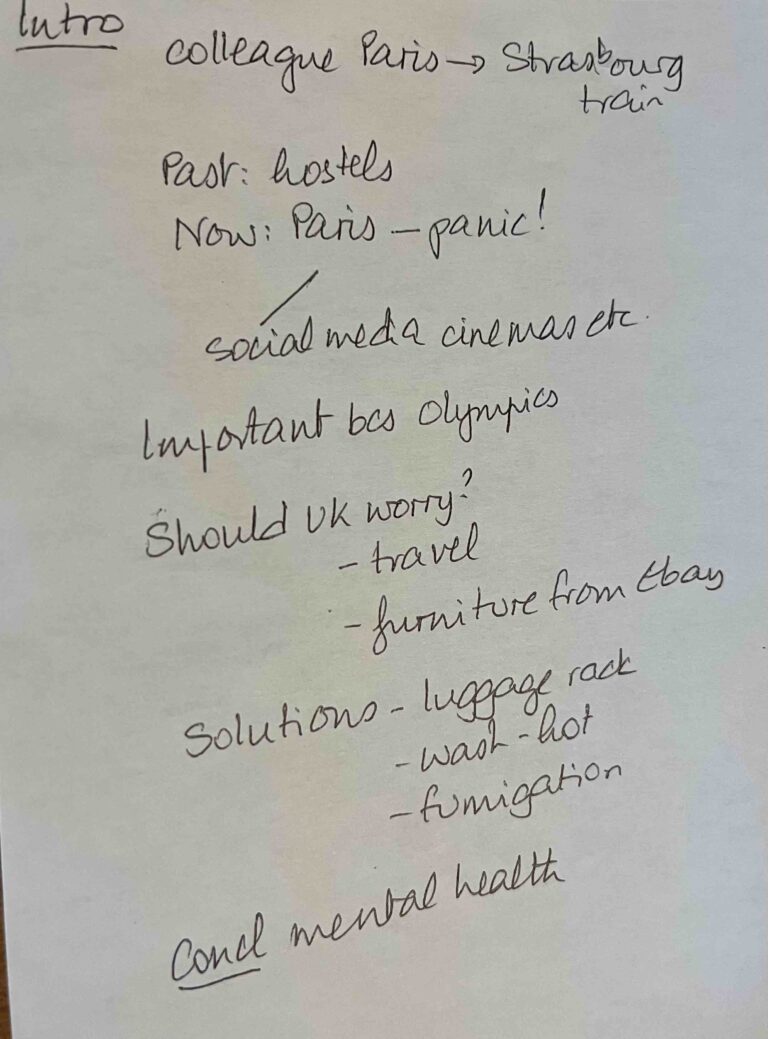 Intro
colleague Paris → Strasbourg
train
Past: hostels
Now: Paris - panic!
social media cinemas etc.
Important bcs Olympics
Should UK worry?
- travel
- furniture from Ebay
Solutions - luggage rack
- wash - hot
- fumigation
Concl mental health